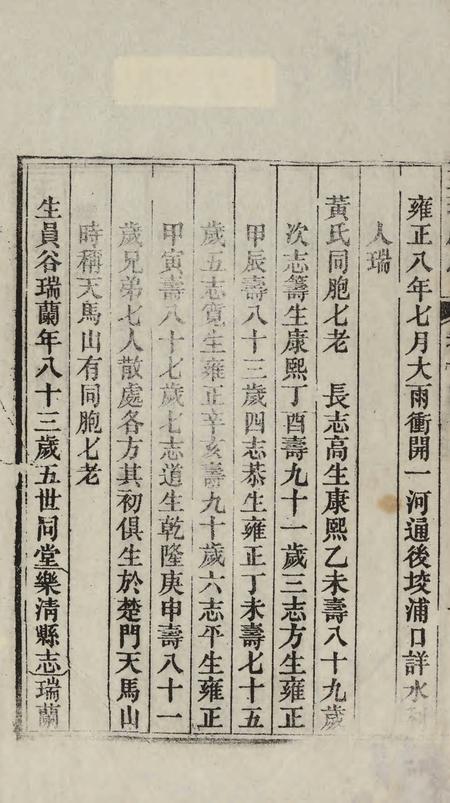 雍正八年七月大雨衝開一河通後垵浦口詳水利
人瑞
黃氏同胞七老　長志高生康熙乙未壽八十九歲
次志籌生康熙丁酉壽九十一歲三志方生雍正
甲辰壽八十三歲四志恭生雍正丁未壽七十五
歲五志寬生雍正辛亥壽九十歲六志平生雍正
甲寅壽八十七歲七志道生乾隆庚申壽八十一
歲兄弟七人散處各方其初俱生於楚門天馬山
時稱天馬山有同胞七老
生員谷瑞蘭年八十三歲五世同堂樂清縣志瑞蘭